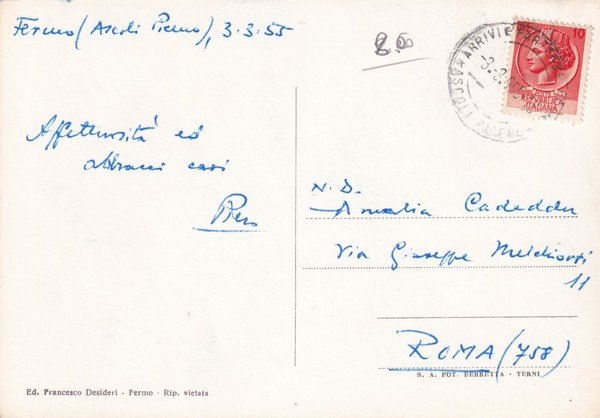 Fermo (Ascoli Piceno), 3.3.55
Affettuosità ed
abbracci cari
Piero
10
REPUBBLICA
ITALIANA
ARRIVI E PARTENZE
N.D.
Amalia Cadeddu
Via Giuseppe Melchiorri
11
ROMA (758)
S. A. FOT. BERRETTA - TERNI
Ed. Francesco Desideri - Fermo - Rip. vietata